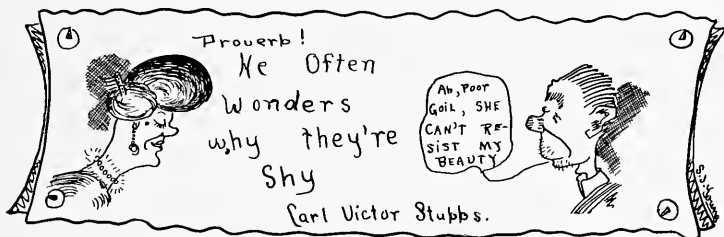 Proverb!
He Often
Wonders
why they're
Shy
Carl Victor Stubbs.
Ah, Poor
Goil, SHE
CAN'T RE-
SIST MY
BEAUTY